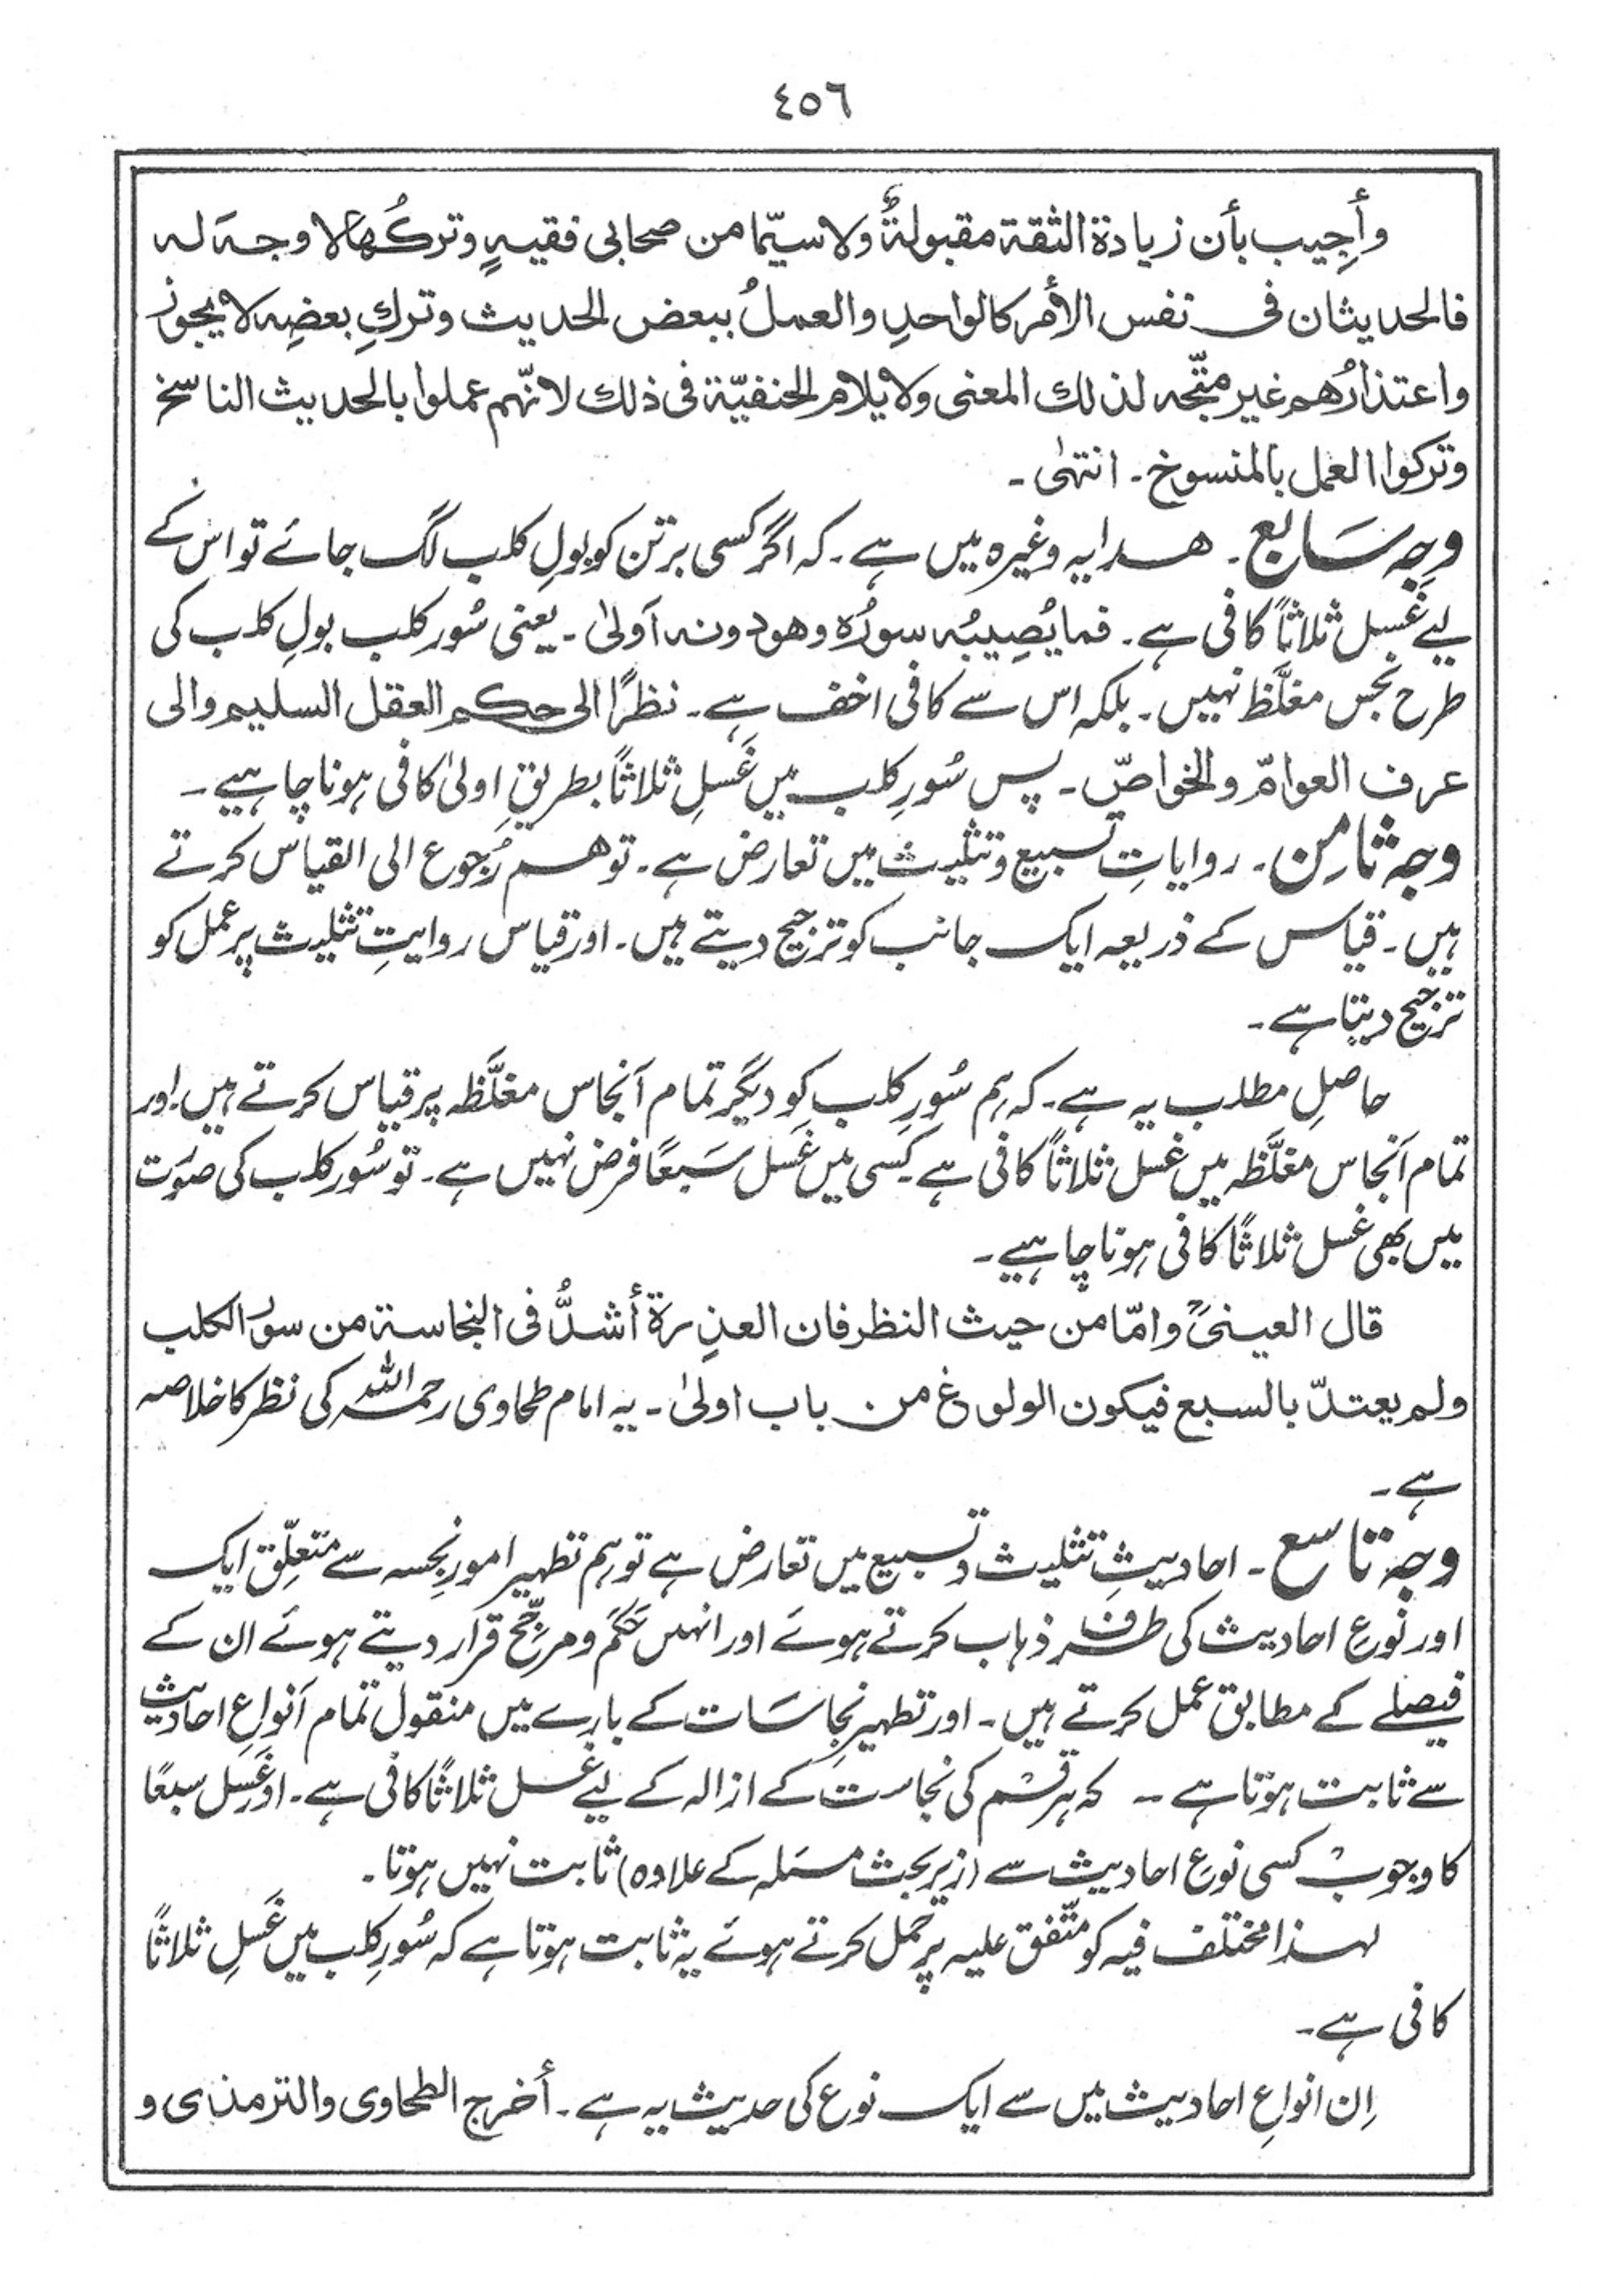 ٤٥٦
وأُجِيب بأن زيادة الثقة مقبولةٌ ولا سيّما من صحابي فقيهٍ وتركُها لا وجهَ له
فالحديثان فى نفس الأمر كالواحدِ والعملُ ببعض الحديث وتركِ بعضِه لا يجوز
واعتذارُهم غير متّجه لذلك المعنى ولا يلام الحنفيّة فى ذلك لانّهم عملوا بالحديث الناسخ
وتركوا العمل بالمنسوخ ۔ انتهىٰ ۔
وجہ سَابع ۔ ھدایہ وغیرہ میں ہے ۔ کہ اگر کسی برتن کو بولِ کلب لگ جائے تو اس کے
لیے غَسل ثلاثاً کافی ہے ۔ فما یُصِیبُه سورُہ وھو دونه اَولیٰ ۔ یعنی سُور کلب بولِ کلب کی
طرح نجس مغلَّظ نہیں ۔ بلکہ اس سے کافی اخف ہے ۔ نظرًا الی حکم العقل السلیم والی
عرف العوامّ والخواصّ ۔ پس سُورِ کلب میں غَسلِ ثلاثاً بطریقِ اولیٰ کافی ہونا چاہیے ۔
وجہ ثامِن ۔ روایاتِ تسبیع و تثلیث میں تعارض ہے ۔ تو ہم رُجوع الی القیاس کرتے
ہیں ۔ قیاس کے ذریعہ ایک جانب کو ترجیح دیتے ہیں ۔ اور قیاس روایتِ تثلیث پر عمل کو
ترجیح دیتا ہے ۔
حاصلِ مطلب یہ ہے ۔ کہ ہم سُورِ کلب کو دیگر تمام اَنجاس مغلَّظہ پر قیاس کرتے ہیں اور
تمام اَنجاس مغلَّظہ میں غسل ثلاثاً کافی ہے ۔ کسی میں غَسل سَبعًا فرض نہیں ہے ۔ تو سُور کلب کی صورت
میں بھی غسل ثلاثًا کافی ہونا چاہیے ۔
قال العینیؒ وامّا من حیث النظر فان العذِرة أشدُّ فی النجاسة من سؤر الکلب
ولم یعتدّ بالسبع فیکون الولوغ من باب اولیٰ ۔ یہ امام طحاوی رحمہ اللہ کی نظر کا خلاصہ
ہے ۔
وجہ تاسع ۔ احادیثِ تثلیث و تسبیع میں تعارض ہے تو ہم تطہیر امور نجسہ سے متعلّق ایک
اور نَوعِ احادیث کی طرف ذہاب کرتے ہوئے اور انہیں حَکَم و مرجِّح قرار دیتے ہوئے ان کے
فیصلے کے مطابق عمل کرتے ہیں ۔ اور تطہیرِ نجاسَات کے بارے میں منقول تمام اَنواعِ احادیث
سے ثابت ہوتا ہے ۔۔ کہ ہر قسم کی نجاست کے ازالہ کے لیے غسل ثلاثًا کافی ہے ۔ اور غَسلِ سبعًا
کا وجوب کسی نوعِ احادیث سے (زیر بحث مسئلہ کے علاوہ) ثابت نہیں ہوتا ۔
لہذا مختلف فیہ کو متّفق علیہ پر حمل کرتے ہوئے یہ ثابت ہوتا ہے کہ سُورِ کلب میں غَسلِ ثلاثًا
کافی ہے ۔
اِن انواعِ احادیث میں سے ایک نوع کی حدیث یہ ہے ۔ أخرج الطحاوی والترمذی و